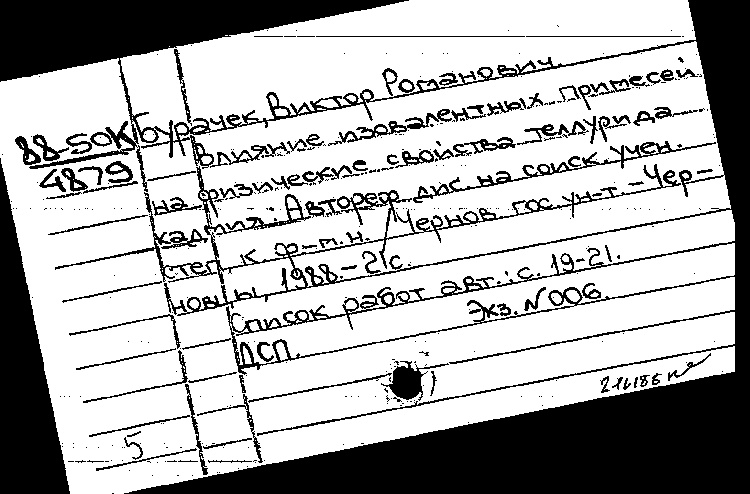 88-50К
4879
Бурачек, Виктор Романович.
Влияние изовалентных примесей
на физические свойства теллурида
кадмия: Автореф. дис. на соиск. учен.
степ. к. ф-м.н. / Чернов. гос. ун-т. - Чер-
новцы, 1988. - 21с.
Список работ авт.: с. 19-21.
Экз. N 006.
ДСП.
5